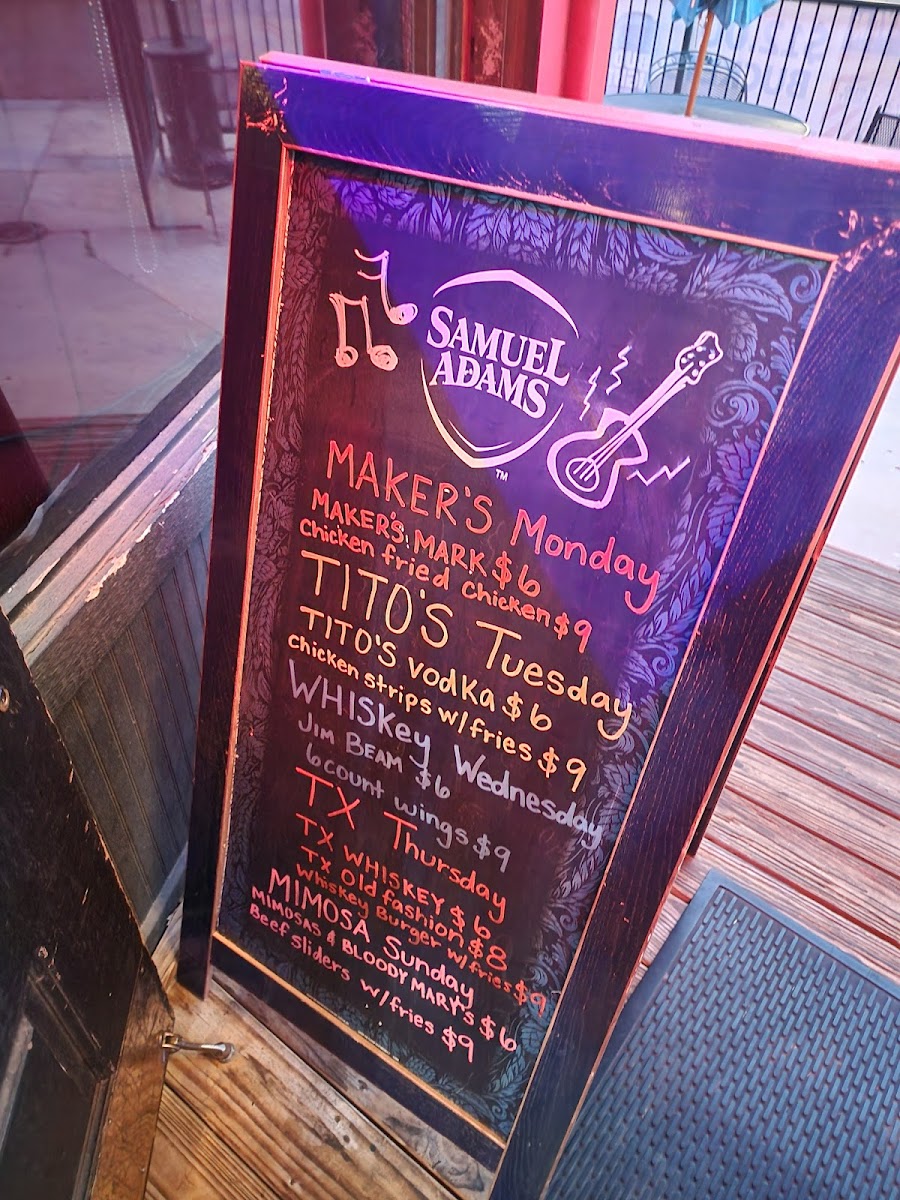 SAMUEL
ADAMS
TM
MAKER'S Monday
MAKER'S MARK $6
Chicken fried Chicken $9
TITO'S Tuesday
TITO'S Vodka $6
Chicken strips w/fries $9
WHISKey Wednesday
JIM BEAM $6
6 count wings $9
TX Thursday
TX WHISKEY $6
TX Old fashion $8
Whiskey Burger w/fries $9
MIMOSA Sunday
MIMOSAS & BLOODY MARY'S $6
Beef Sliders w/fries $9